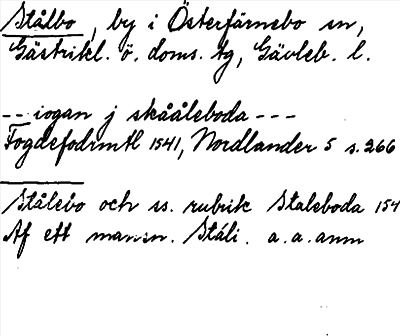 Stålbo, by i Österfärnebo sn,
Gästrikl. ö. doms. tg, Gävleb. l.
-- iogan j skååleboda ---
Fogdefodrmtl 1541, Nordlander 5 s. 266
Stålebo och ss. rubrik Staleboda 154
Af ett mansn. Ståli. a.a. anm